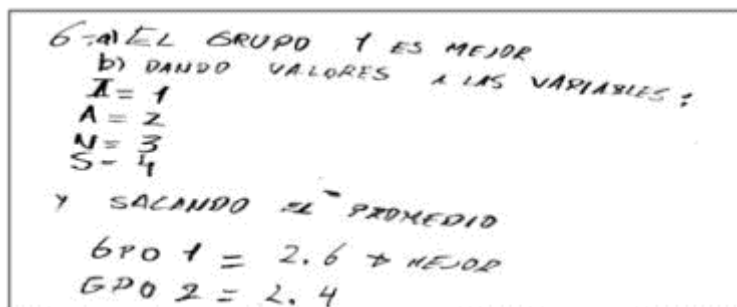 6-a) EL GRUPO 1 ES MEJOR
b) DANDO VALORES A LAS VARIABLES:
I = 1
A = 2
N = 3
S - 4
Y SACANDO EL PROMEDIO
GPO 1 = 2.6 → MEJOR
GPO 2 = 2.4